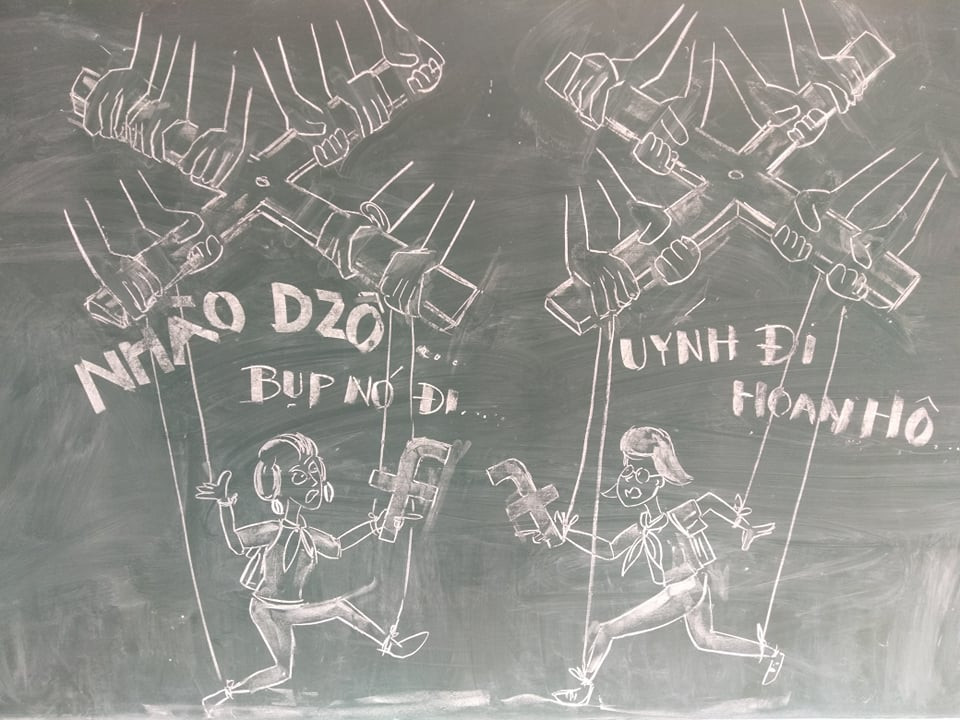 NHÀO DZÔ....
BỤP NÓ ĐI....
f
f
UYNH ĐI
HOAN HÔ